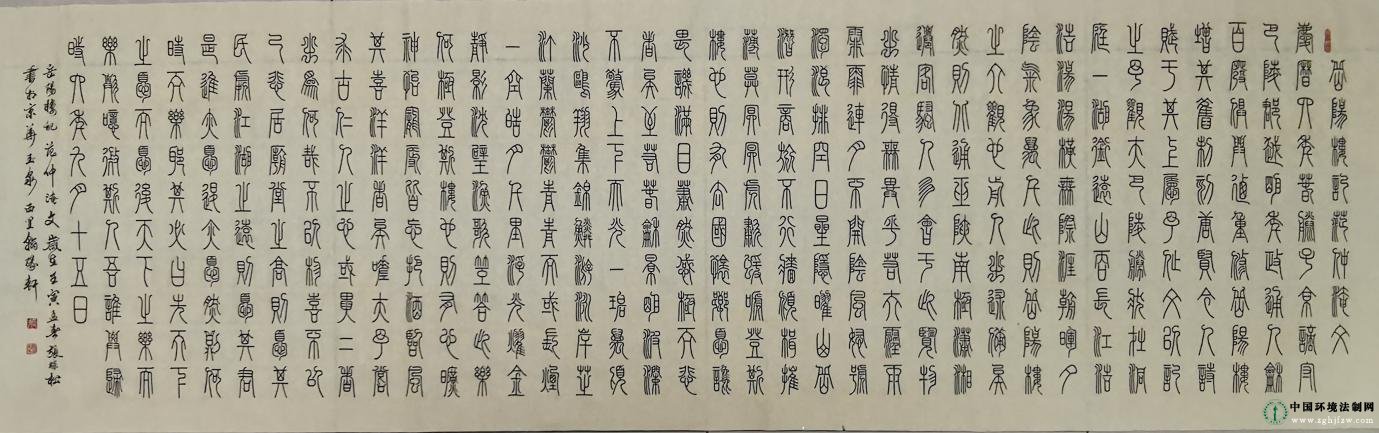 岳陽樓記范仲淹文
慶曆四年春滕子京謫守
巴陵郡越明年政通人和
百廢俱興迺重修岳陽樓
增其舊制刻唐賢今人詩
賦于其上屬予作文以記
之予觀夫巴陵勝狀在洞
庭一湖銜遠山吞長江浩
浩湯湯橫無際涯朝暉夕
陰氣象萬千此則岳陽樓
之大觀也前人之述備矣
然則北通巫峽南極瀟湘
遷客騷人多會于此覽物
之情得無異乎若夫霪雨
霏霏連月不開陰風怒號
濁浪排空日星隱曜山岳
潛形商旅不行檣傾楫摧
薄暮冥冥虎嘯猿啼登斯
樓也則有去國懷鄉憂讒
畏譏滿目蕭然感極而悲
者矣至若春和景明波瀾
不驚上下天光一碧萬頃
沙鷗翔集錦鱗游泳岸芷
汀蘭鬱鬱青青而或長煙
一空皓月千里浮光耀金
靜影沈璧漁歌互答此樂
何極登斯樓也則有心曠
神怡寵辱皆忘把酒臨風
其喜洋洋者矣嗟夫予嘗
求古仁人之心或異二者
之為何哉不以物喜不以
己悲居廟堂之高則憂其
民處江湖之遠則憂其君
是進亦憂退亦憂然則何
時而樂耶其必曰先天下
之憂而憂後天下之樂而
樂歟噫微斯人吾誰與歸
時六年九月十五日
岳陽樓記范仲淹文歲在壬寅孟春張松
書於京華玉泉西里軒
中国环境法制网
www.zghjfzw.com